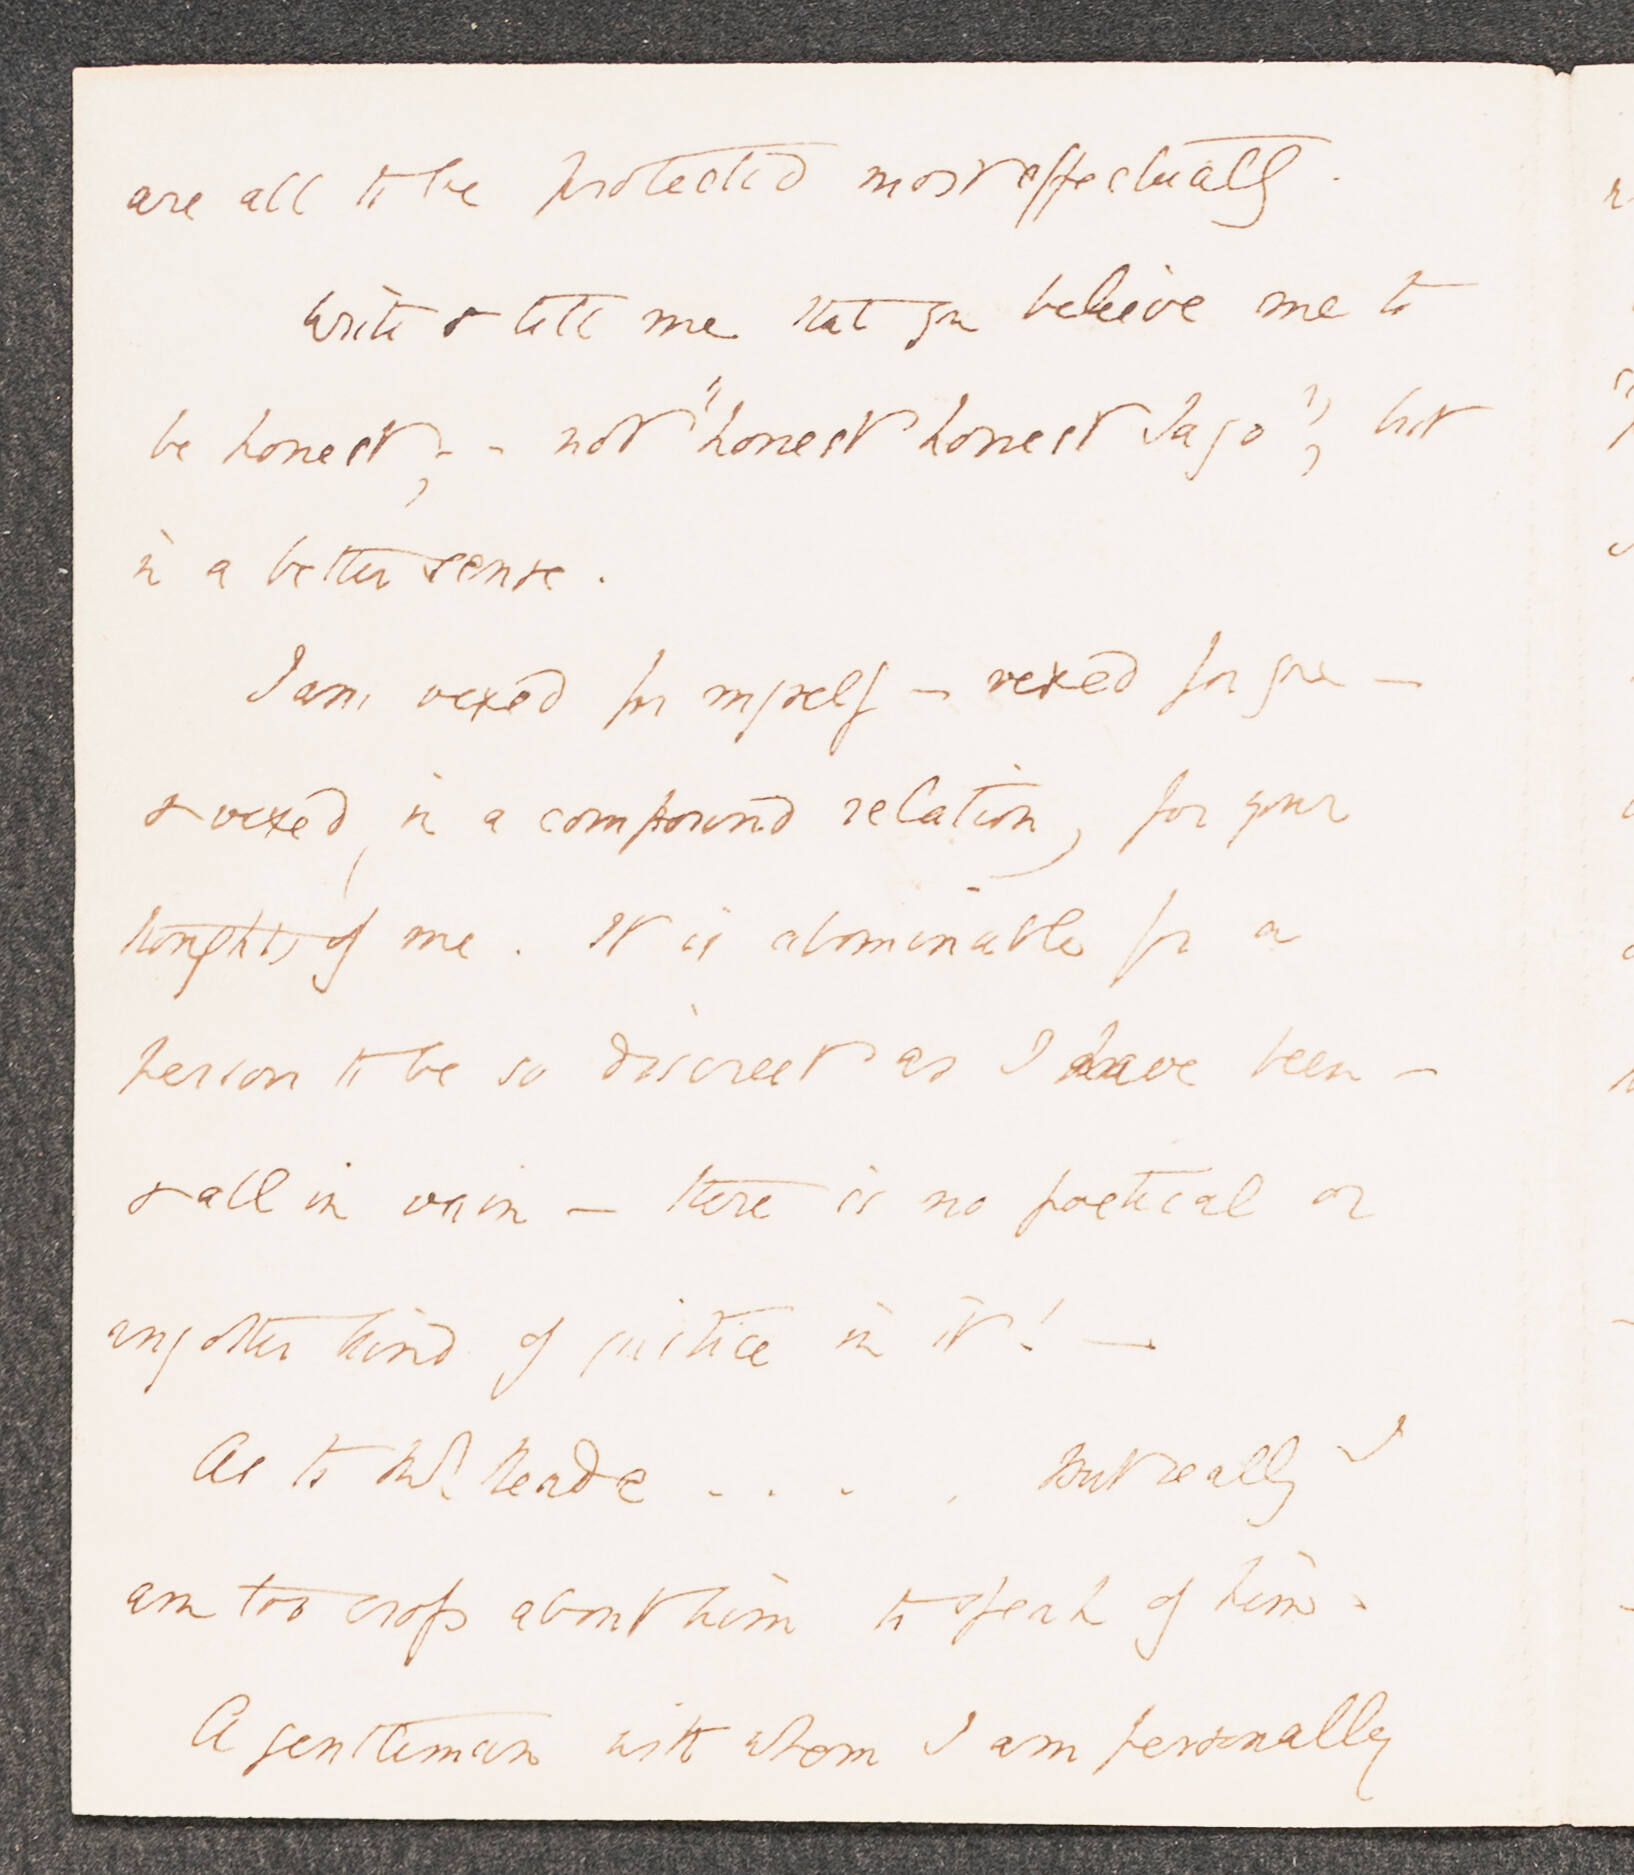 are all to be protected most effectually.
Write & tell me that you believe me to
be honest; - - not "honest honest Iago", but
in a better sense.
I am vexed for myself — vexed for you —
& vexed, in a compound relation, for your
thoughts of me. It is abominable for a
person to be so discreet as I have been —
& all in vain — there is no poetical or
any other kind of justice in it! —
As to Mr. Reade . . . . But really I
am too cross about him to speak of him.
A gentleman with whom I am personally